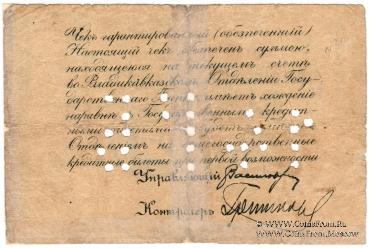 Чекъ гарантированный (обезпеченный)
Настоящий чекъ обезпеченъ суммою,
находящеюся на текущемъ счетѣ
во Владикавказскомъ Отдѣленіи Госу-
дарственнаго имѣетъ хожденіе
наравнѣ Госу ными кредит-
ными
Отдѣленіемъ на государственные
кредитные билеты при первой возможности
Управляющій
Контролеръ
www.CoinsFrom.Ru
CoinsFrom.Ru